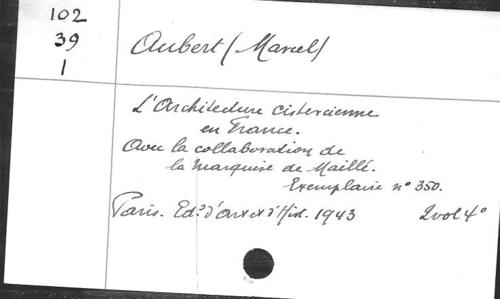 102
39
1
Aubert (Marcel)
L'Architecture cistercienne
en France.
Avec la collaboration de
la Marquise de Maillé.
Exemplaire n° 350.
Paris. Ed.ᵒ d'Art et d'Hist. 1943 2 vol 4°